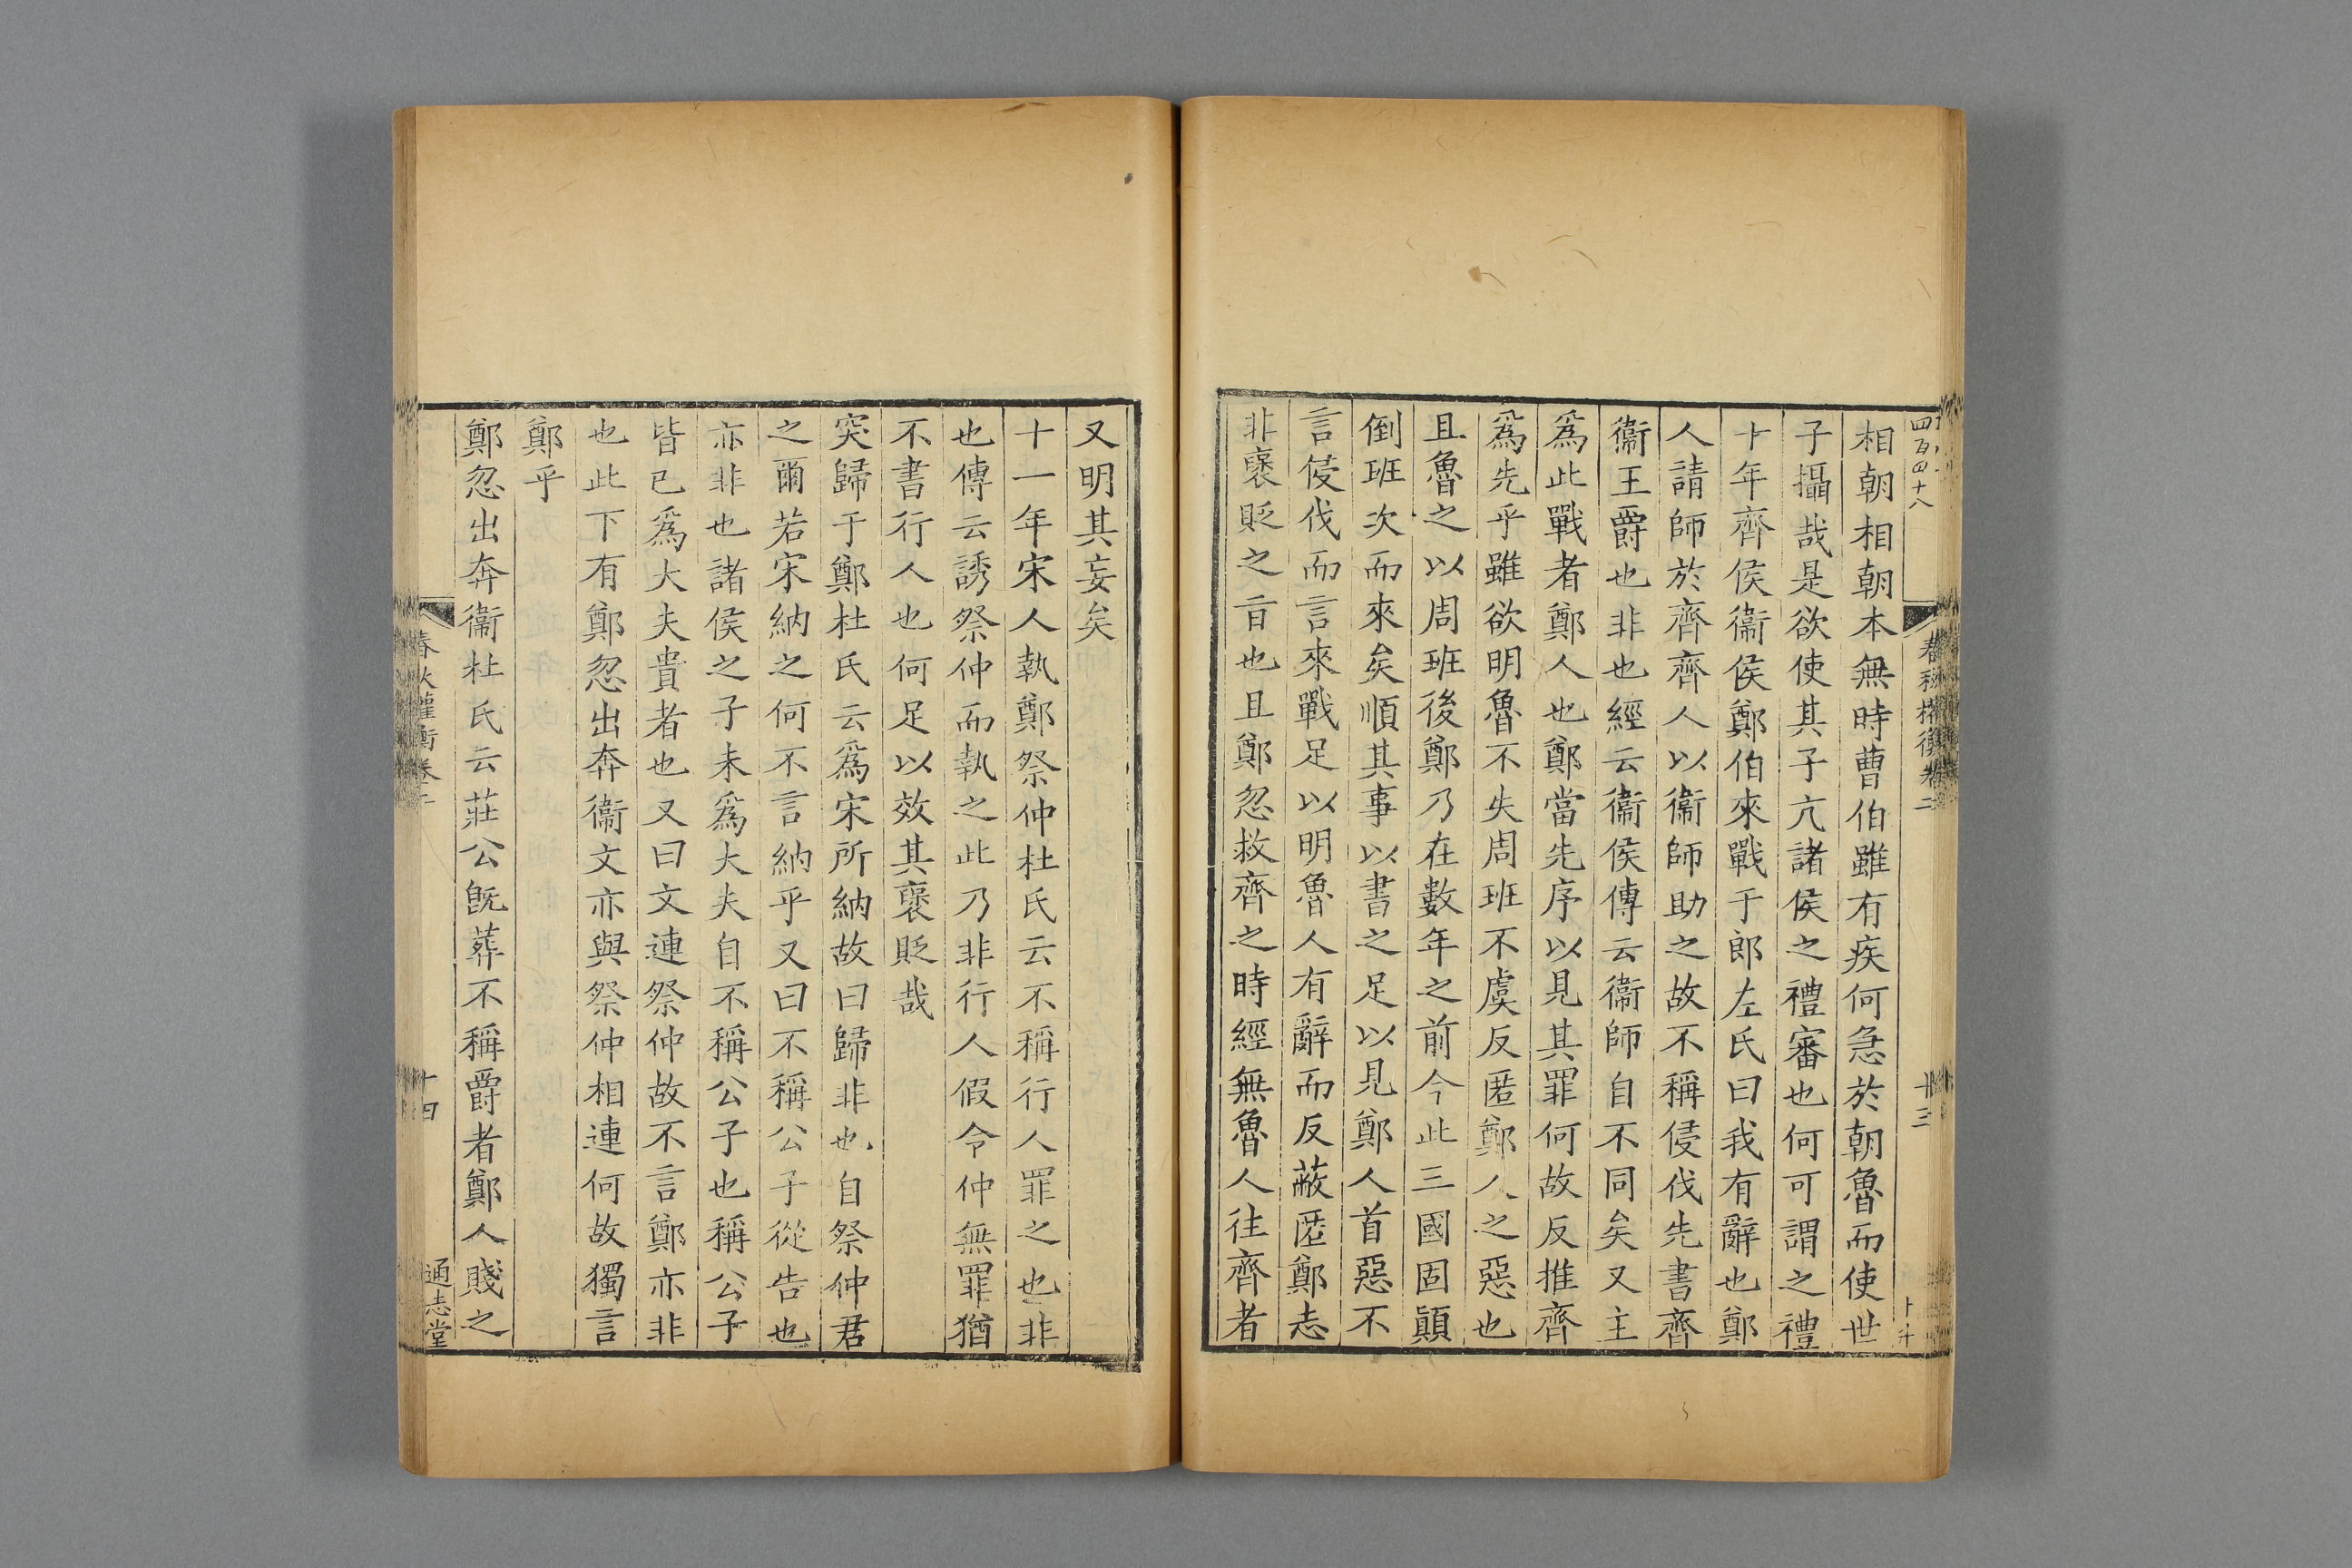 四百四十八
春秋權衡卷二
十三
相朝相朝本無時曹伯雖有疾何急於朝魯而使世
子攝哉是欲使其子亢諸侯之禮審也何可謂之禮
十年齊侯衞侯鄭伯來戰于郎左氏曰我有辭也鄭
人請師於齊齊人以衞師助之故不稱侵伐先書齊
衞王爵也非也經云衞侯傳云衞師自不同矣又主
爲此戰者鄭人也鄭當先序以見其罪何故反推齊
爲先乎雖欲明魯不失周班不虞反匿鄭人之惡也
且魯之以周班後鄭乃在數年之前今此三國固顚
倒班次而來矣順其事以書之足以見鄭人首惡不
言侵伐而言來戰足以明魯人有辭而反蔽匿鄭志
非襃貶之旨也且鄭忽救齊之時經無魯人往齊者
又明其妄矣
十一年宋人執鄭祭仲杜氏云不稱行人罪之也非
也傳云誘祭仲而執之此乃非行人假令仲無罪猶
不書行人也何足以效其襃貶哉
突歸于鄭杜氏云爲宋所納故曰歸非也自祭仲君
之爾若宋納之何不言納乎又曰不稱公子從告也
亦非也諸侯之子未爲大夫自不稱公子也稱公子
皆已爲大夫貴者也又曰文連祭仲故不言鄭亦非
也此下有鄭忽出奔衞文亦與祭仲相連何故獨言
鄭乎
鄭忽出奔衞杜氏云莊公旣葬不稱爵者鄭人賤之
春秋權衡卷二
十四
通志堂